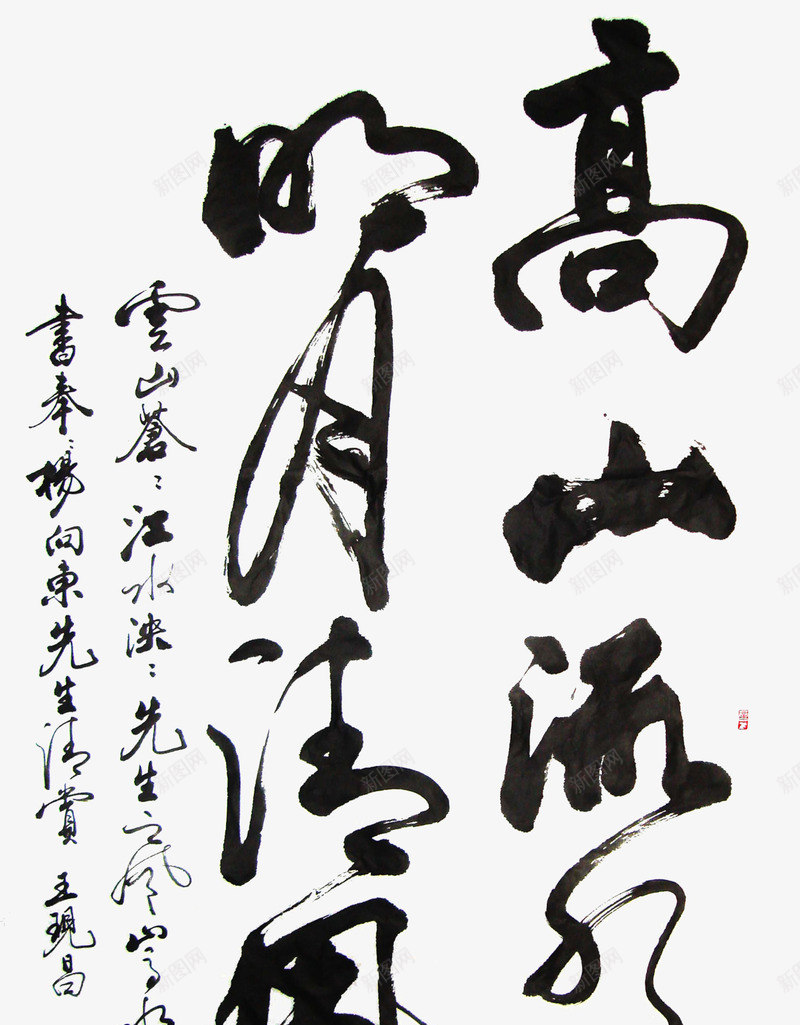 高山流水
明月清風
雲山蒼〻江水泱〻先生之風山高水
書奉〻楊向東先生清賞 王現昌
新图网